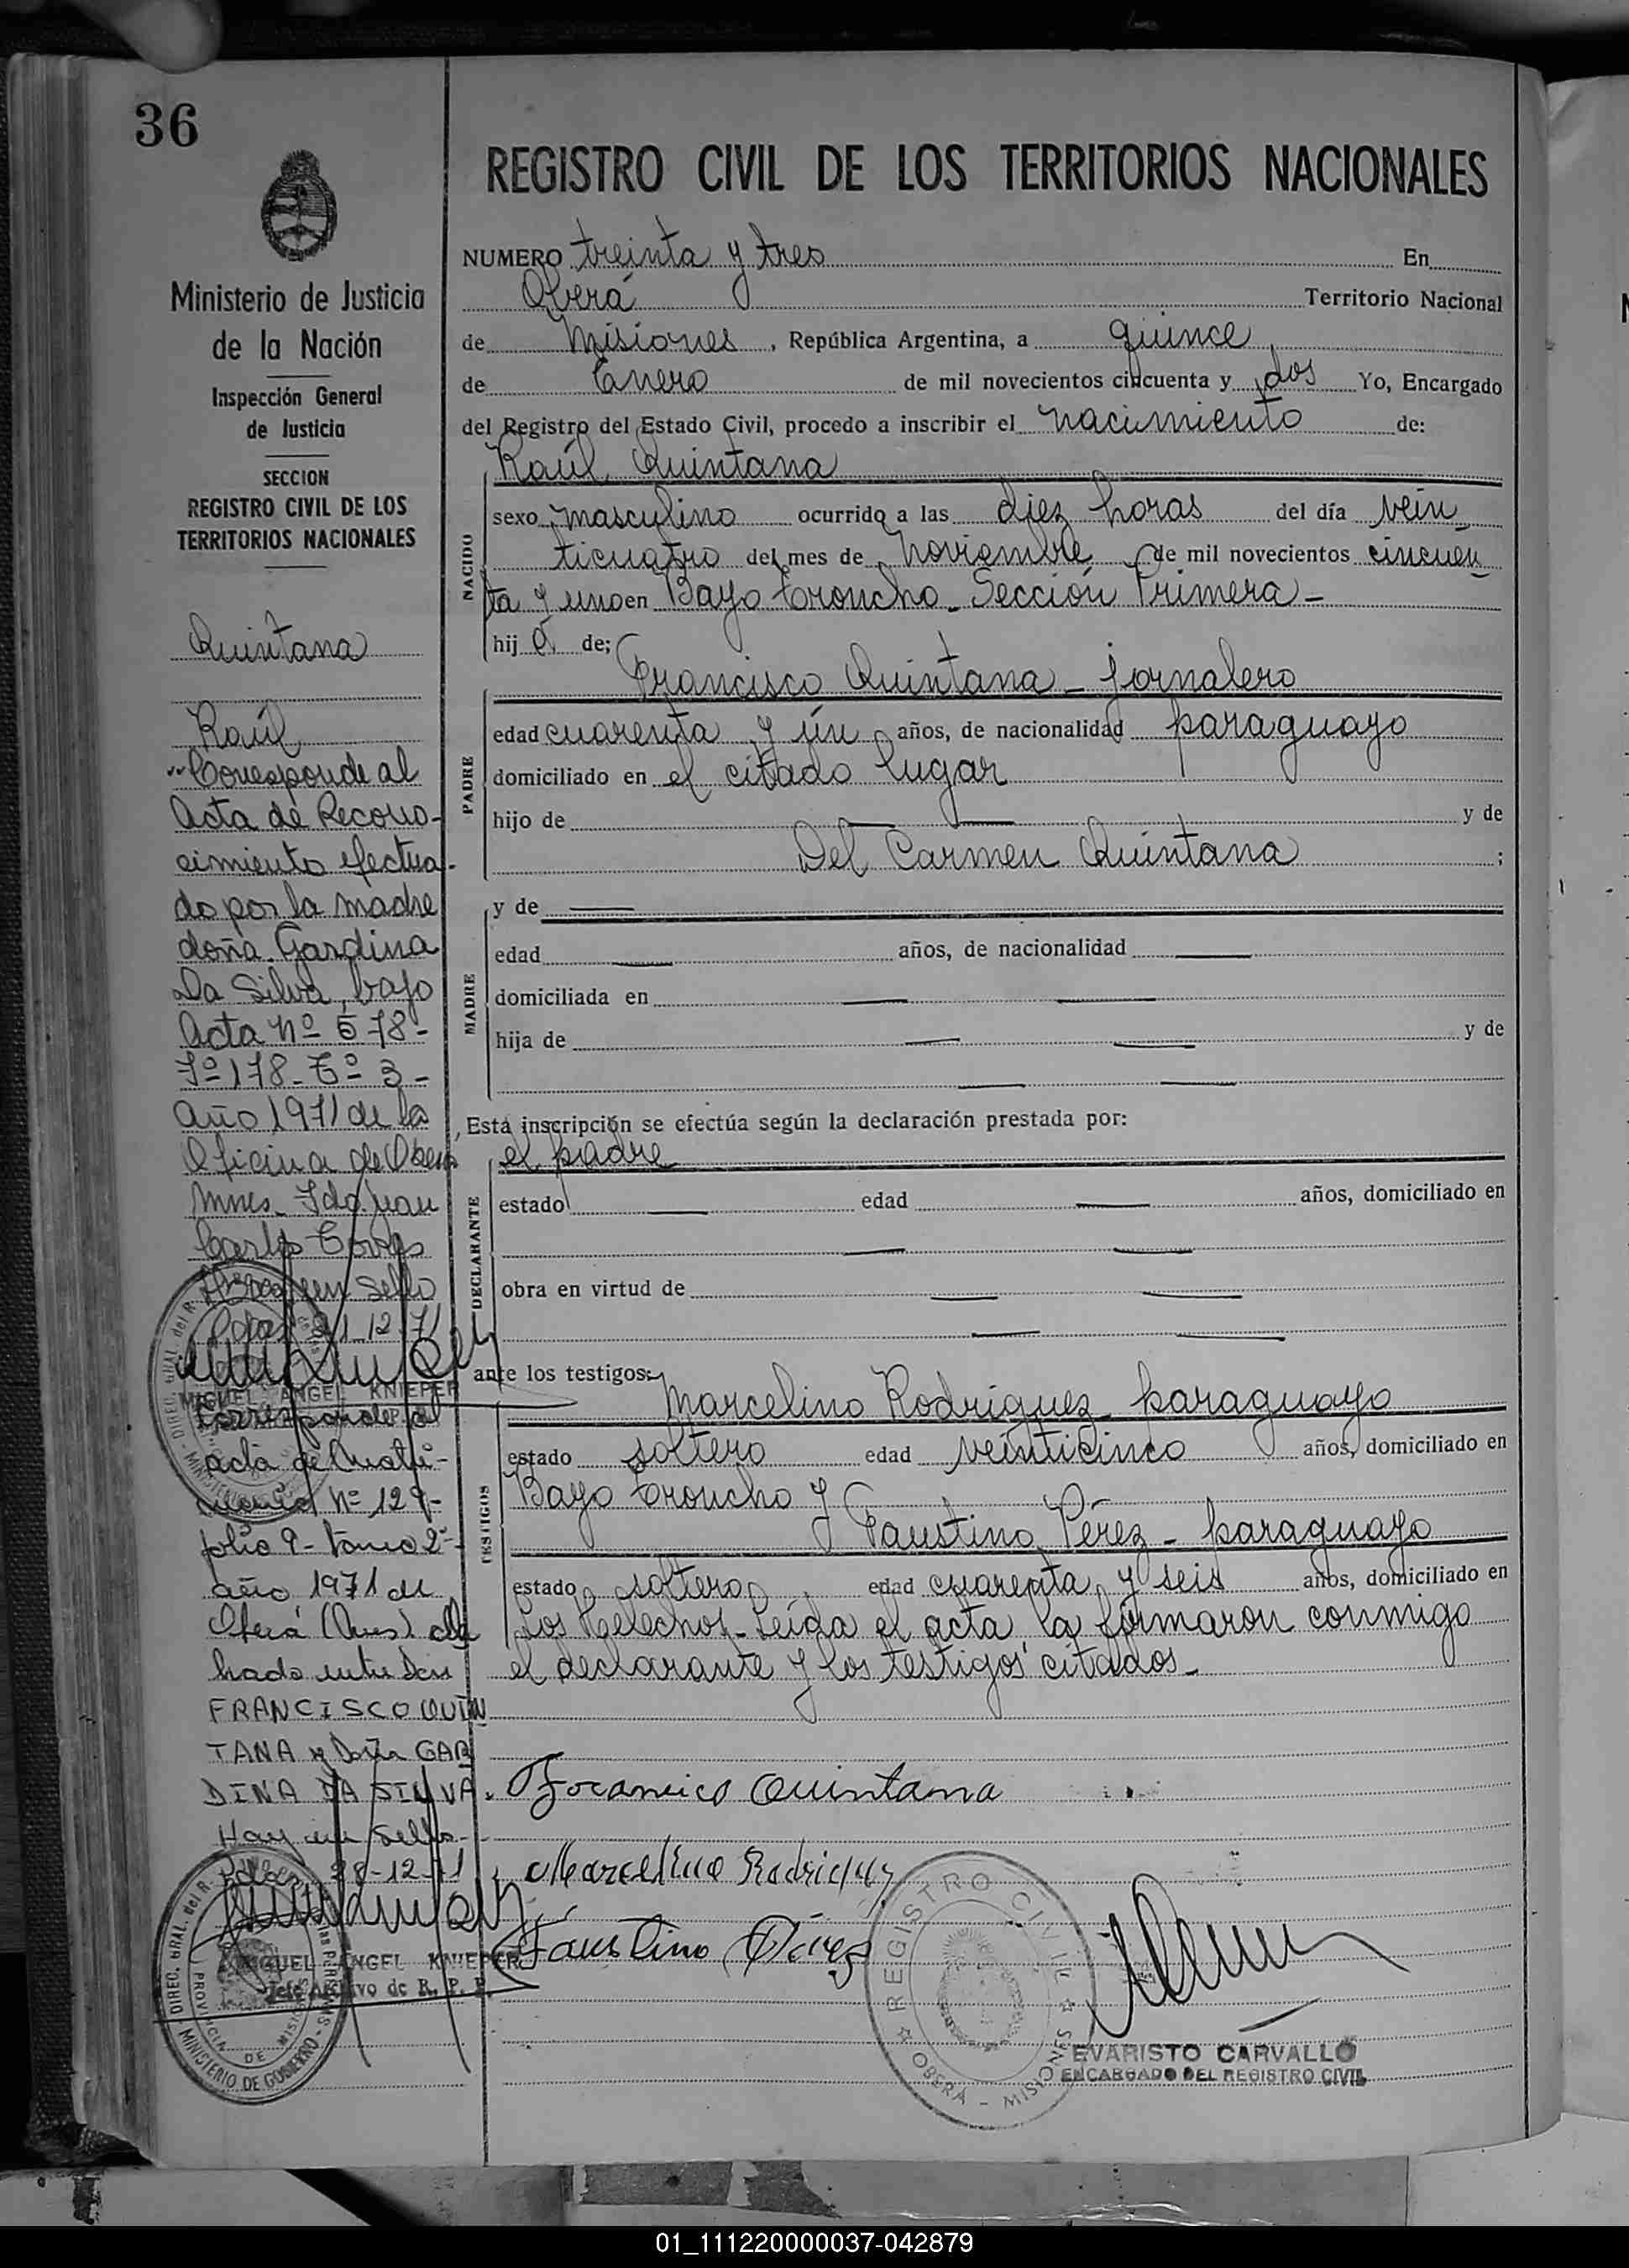 36
Ministerio de Justicia
de la Nación
Inspección General
de Justicia
SECCION
REGISTRO CIVIL DE LOS
TERRITORIOS NACIONALES
Quintana
Raúl
"Corresponde al
Acta de Recono-
cimiento efectua-
do por la madre
doña Gardina
Da Silva, bajo
Acta Nº 578-
Fº 178- Tº 3-
Año 1971 de la
Oficina de Oberá
Mnes. Fdo Juan
Carlos Torres
Hay un sello
Pdas 21-12-71
MIGUEL ANGEL KNIEPER
Corresponde al
acta de Matri-
monio Nº 129-
folio 9- tomo 2º-
año 1971 de
Oberá (Mnes).
brado entre Don
FRANCISCO QUIN
TANA y Doña GAR
DINA DA SILVA.
Hay un sello-
Pdas 28-12-71
MIGUEL ANGEL KNIEPER
Jefe Archivo de R. P. P.
DIREC. GRAL. del R.
PROVINCIA DE MISIONES
MINISTERIO DE GOBIERNO
REGISTRO CIVIL DE LOS TERRITORIOS NACIONALES
NUMERO treinta y tres En
Oberá Territorio Nacional
de Misiones, República Argentina, a quince
de Enero de mil novecientos cincuenta y dos Yo, Encargado
del Registro del Estado Civil, procedo a inscribir el nacimiento de:
Raúl Quintana
NACIDO
sexo masculino ocurrido a las diez horas del día vein
ticuatro del mes de Noviembre de mil novecientos cincuen
ta y uno en Bayo Troncho- Sección Primera-
hij o de;
Francisco Quintana- jornalero
PADRE
edad cuarenta y ún años, de nacionalidad paraguayo
domiciliado en el citado lugar
hijo de y de
Del Carmen Quintana ;
MADRE
y de
edad años, de nacionalidad
domiciliada en
hija de y de
Esta inscripción se efectúa según la declaración prestada por:
el padre
DECLARANTE
estado edad años, domiciliado en
obra en virtud de
ante los testigos:
Marcelino Rodriguez- paraguayo
TESTIGOS
estado soltero edad veinticinco años, domiciliado en
Bayo Troncho y
Faustino Pérez- paraguayo
estado soltero edad cuarenta y seis años, domiciliado en
Los Helechos- Leída el acta, la firmaron conmigo
el declarante y los testigos citados-
Francisco Quintana
Marcelino Rodriguez
Faustino Pérez
REGISTRO CIVIL
OBERÁ - MISIONES
EVARISTO CARVALLO
ENCARGADO DEL REGISTRO CIVIL
01_111220000037-042879